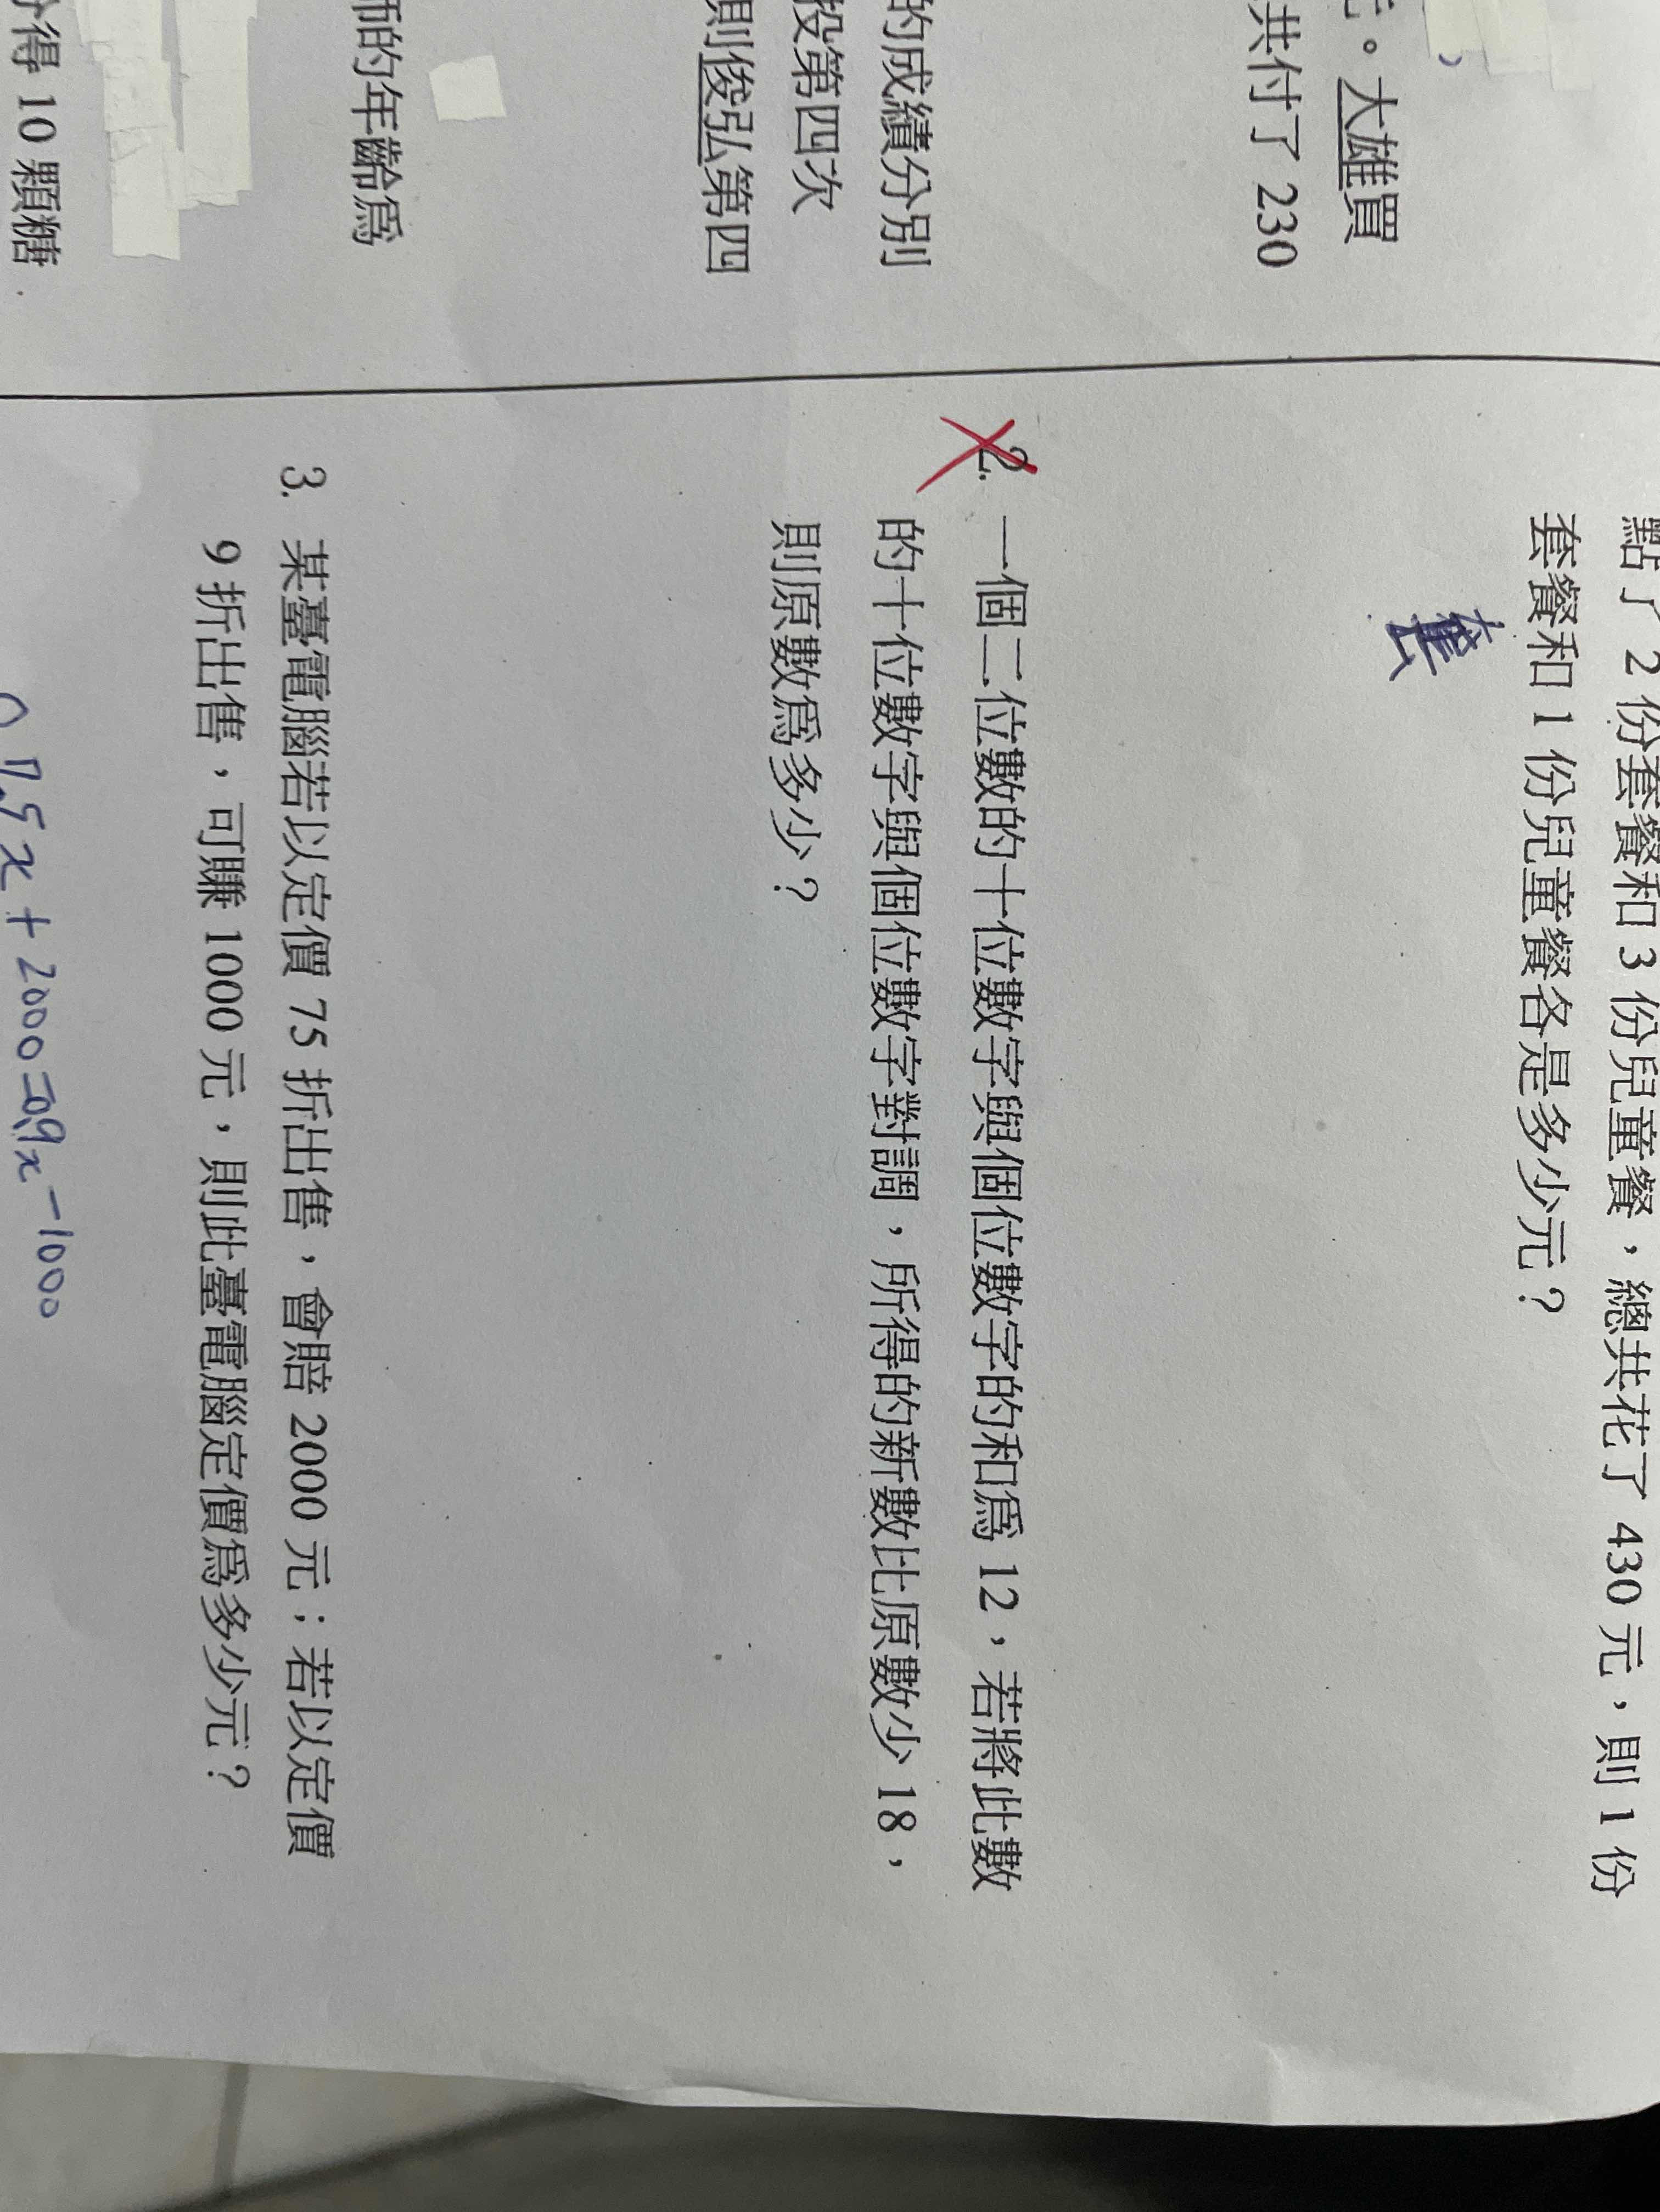 大雄買
共付了 230
的成績分別
投第四次
則俊弘第四
師的年齡為
得 10 顆糖
點了 2 份套餐和 3 份兒童餐，總共花了 430 元，則 1 份
套餐和 1 份兒童餐各是多少元？
2. 一個二位數的十位數字與個位數字的和為 12，若將此數
的十位數字與個位數字對調，所得的新數比原數少 18，
則原數為多少？
3. 某臺電腦若以定價 75 折出售，會賠 2000 元；若以定價
9 折出售，可賺 1000 元，則此臺電腦定價為多少元？
0.75x+2000=0.9x-1000